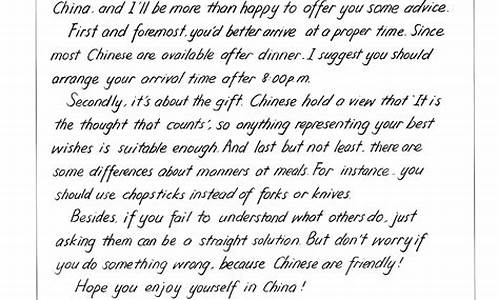 China. and I'll be more than happy to offer you some advice.
First and foremost, you'd better arrive at a proper time. Since
most Chinese are available after dinner. I suggest you should
arrange your arrival time after 8:00 p.m.
Secondly, it's about the gift. Chinese hold a view that "It is
the thought that counts", so anything representing your best
wishes is suitable enough. And last but not least, there are
some differences about manners at meals. For instance, you
should use chopsticks instead of forks or knives.
Besides, if you fail to understand what others do, just
asking them can be a straight solution. But don't worry if
you do something wrong, because Chinese are friendly!
Hope you enjoy yourself in China!